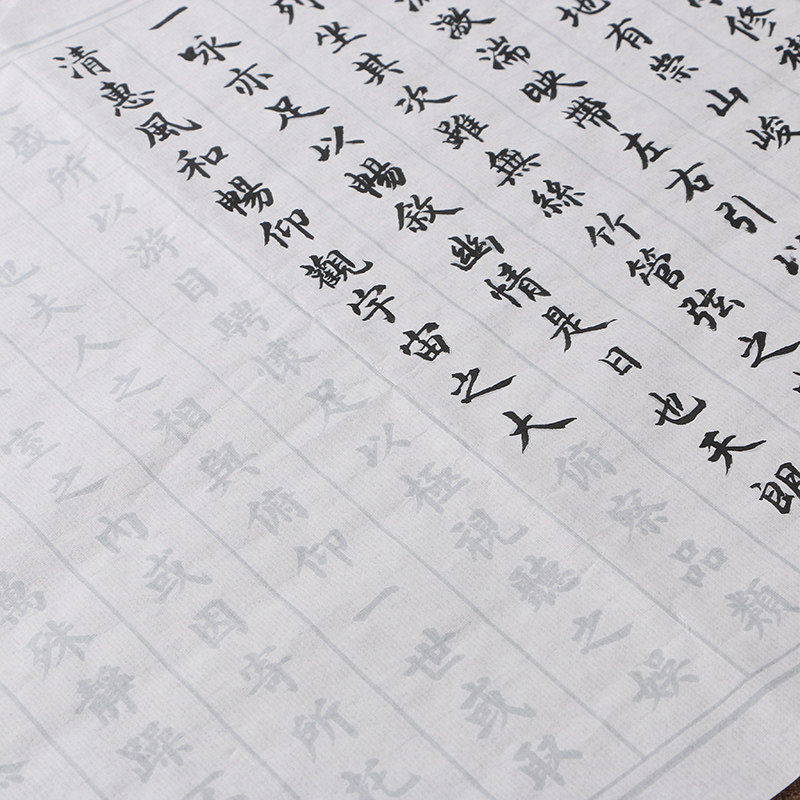 修
地有崇山峻
激湍映帶左右引以
列坐其次雖無絲竹管弦之
一咏亦足以暢敘幽情是日也天朗
清惠風和暢仰觀宇宙之大俯察品類
盛所以游目騁懷足以極視聽之娛
也夫人之相與俯仰一世或取
室之內或因寄所託
萬殊靜躁不